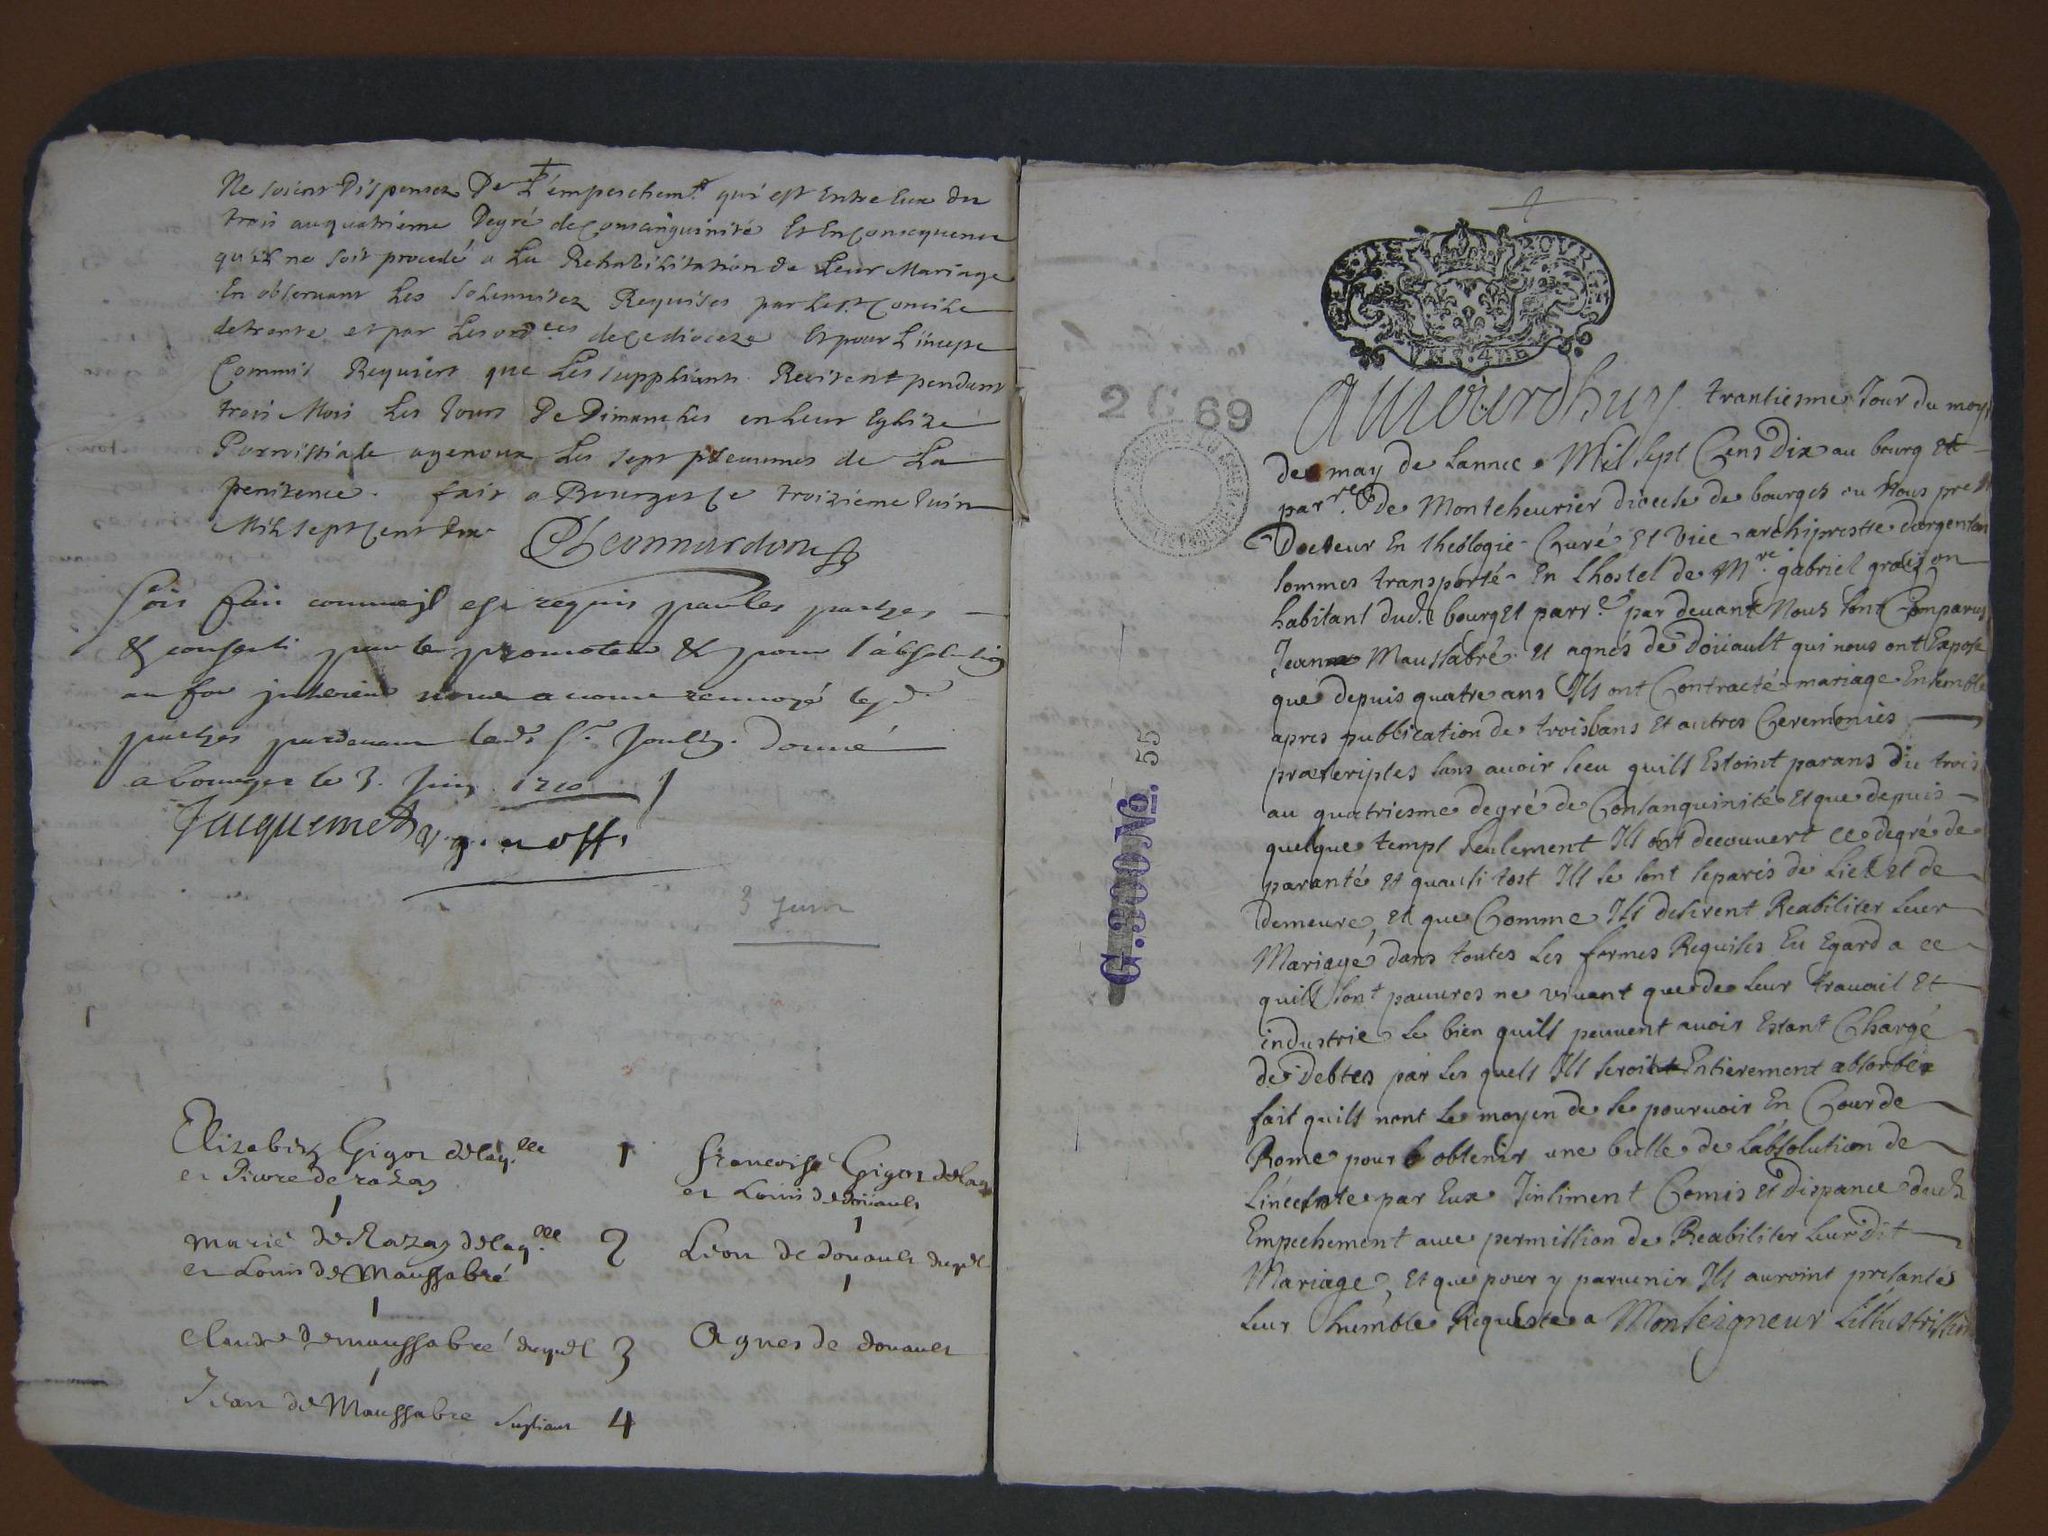 Ne soient Dispensez De L'empeschemt. qui est Entre Eux du
trois au quatrieme Degré de Consanguinité Et En Consequence
qu'il ne soit procedé a La Rehabilitation de Leur Mariage
En observant Les solemnitez Requises par Le st. Concile
de trente et par Les ordces de Ce dioceze Et pour L'inceste
Commis Requiert que Les suppliants Recitent pendant
trois Mois Les Jours De Dimanches en Leur Eglize
Parroissiale a genoux Les sept pseaumes de La
penitence. fait a Bourges Ce troizieme Juin
Mil sept Cent dix
Leonnardon
Soit fait comme il est requis par les parties
& consenti par le promoteur & pour l'absolution
au for interieur nous avons renvoyé lesd.
parties pardevant led. Sr. donné
a bourges le 3. Juin 1710
Jacquemet v. g. et off.
3 Juin
Elizabeth Gigon delaqlle
et Pierre de razay
1
francoise Gigon delaq
et Louis de doüault
Marie de Razay delaqlle
et Louis de Maussabré
2
Leon de douault duquel
Claude de maussabré duquel
3
Agnes de douault
Jean de Maussabre supliant
4
GNE. DE BOVRGES
VNS. 4DE
2 G 69
G. 300 No. 55
Aujourdhuy trantiesme Jour du moys
de may de Lannee Mil sept Cens Dix au bourg et
parre. De Montcheurier diocese de bourges ou Nous pre
Docteur En theologie Curé Et vice archiprestre dargenton
sommes transporté En Lhostel de Mre. gabriel
habitant dud. bourg Et parre. par devant Nous sont Comparus
Jean Maussabré et agnés de Doüault qui nous ont Exposé
que depuis quatre ans Ils ont Contracté mariage Ensemble
apres publication de trois bans Et autres Ceremonies
prescriptes sans avoir sceu quils Estoint parans du trois
au quatriesme degré de Consanguinité Et que depuis
quelque temps seulement Ils ont decouvert ce degré de
paranté et quausi tost Ils se sont separés de Lict et de
demeure, et que Comme Ils desirent Reabiliter Leur
Mariage dans toutes Les formes Requises Eu Egard a ce
quils sont pauvres ne vivant que de Leur travail Et
industrie Le bien quils peuvent avoir Estant Chargé
de Debtes par Les quels Ils seroint Entierement absorbé
fait quils nont Le moyen de se pourvoir En Cour de
Rome pour obtenir une bulle de Labsolution de
Linceste par Eux Comis et Dispance dud.
Empechement avec permission de Reabiliter Leur Dit
Mariage, Et que pour y parvenir Ils auroint présantés
Leur humble Requeste a Monseigneur Lillustrissim